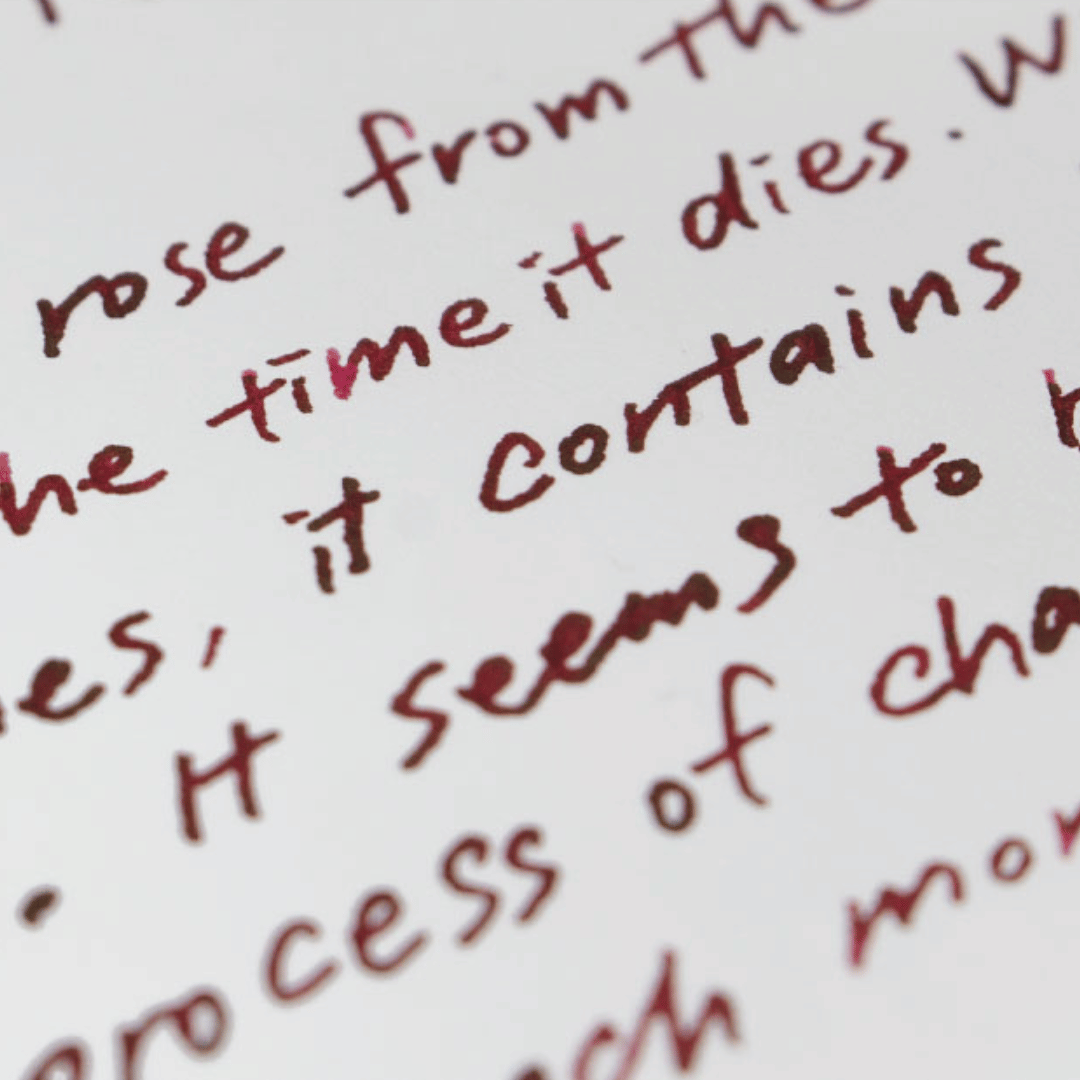 rose from the
he time it dies. W
es, it contains
. It seems to
rocess of cha
ch mor